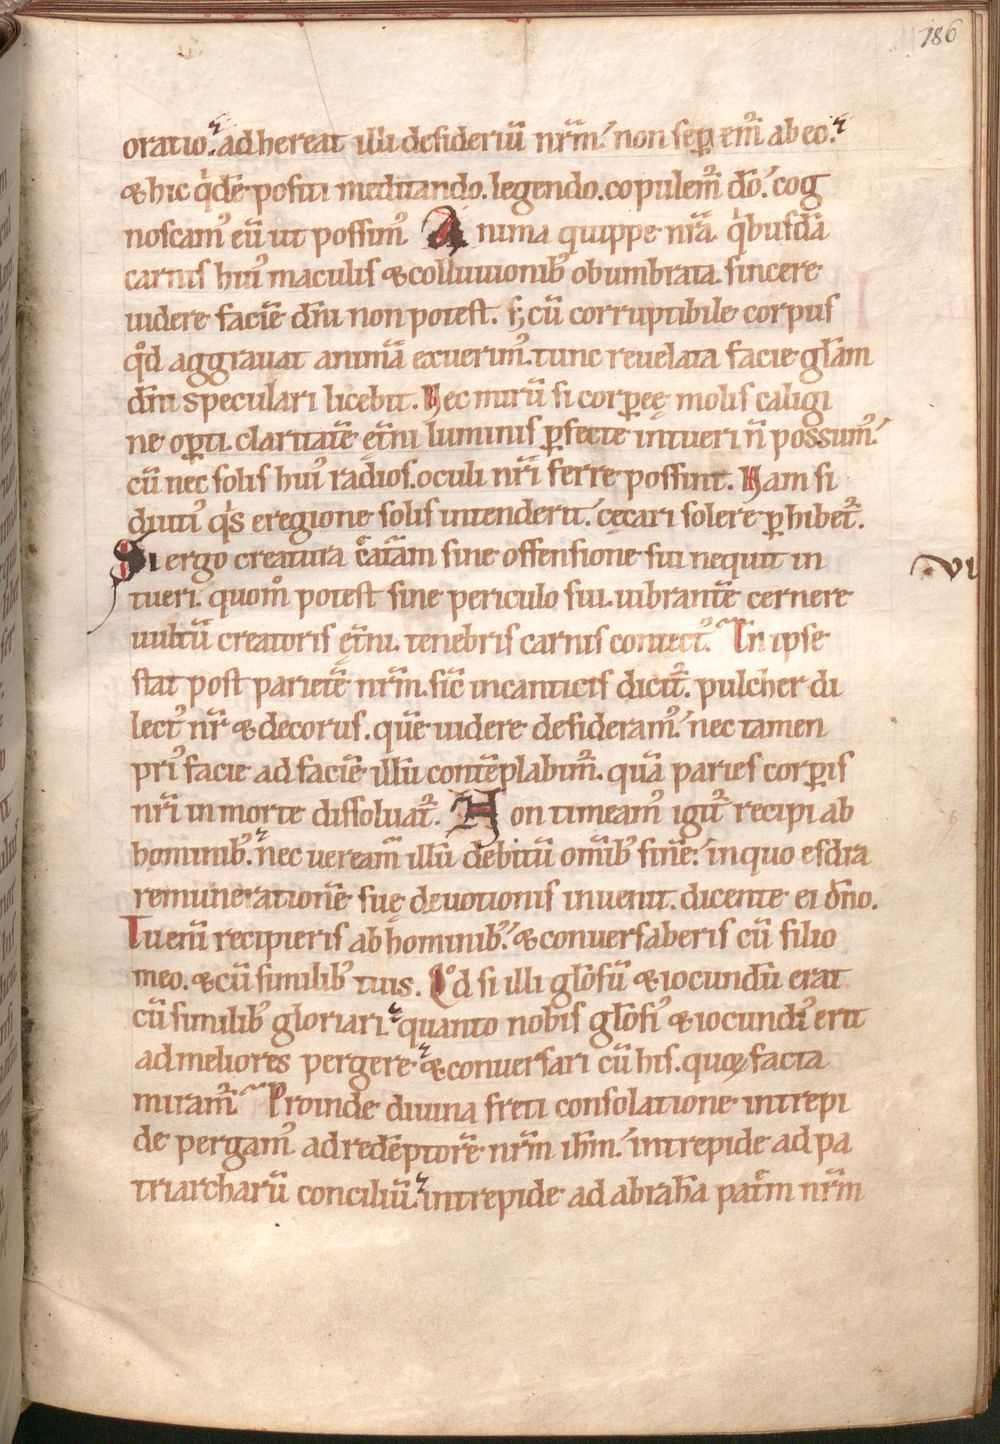 186
oratio. adhereat illi desideriū nr̄m. non seꝑem᷑ ab eo.
& hic q̇dē positi meditando. legendo. copulem᷑ dō. cog
noscam᷒ eū ut possim᷒. Anima quippe nr̄a q̇busdā
carnis hui᷒ maculis & colluuionib᷒ obumbrata. sincere
uidere faciē dn̄i non potest. sꝫ cū corruptibile corpus
qͦd aggrauat animā exuerim᷒. tunc reuelata facie gl̄am
dn̄i speculari licebit. Nec mirū si corꝑeę molis caligi
ne oꝑti. claritatē ęt̄ni luminis ꝑfecte intueri n̄ possum᷒.
cū nec solis hui᷒ radios. oculi nr̄i ferre possint. Nam si
diuti᷒ q̇s eregione solis intenderit. cęcari solere ꝑhibet᷑.
Si ergo creatura c̄atām sine offensione sui nequit in
VI
tueri. quom̊ potest sine periculo sui. uibrantē cernere
uultū creatoris ęt̄ni. tenebris carnis contect᷒. In ipse
stat post parietē nr̄m. sic̄ incanticis dicit᷑. pulcher di
lect᷒ nr̄ & decorus. quē uidere desideram᷒. nec tamen
pri᷒ facie ad faciē illū contēplabim᷑. quā paries corꝑis
nr̄i in morte dissoluat᷑. Non timeam᷒ igit᷑ recipi ab
hominib᷒. nec ueream᷑ illū debitū om̄ib᷒ finē. in quo esdra
remunerationē suę deuotionis inuenit. dicente ei dn̄o.
Tu eni᷑ recipieris ab hominib᷒. & conuersaberis cū filio
meo. & cū similib᷒ tuis. Qͦd si illi gl̄osū & iocundū erat
cū similib᷒ gloriari. quanto nobis gl̄osi᷒ & iocundi᷒ erit
ad meliores pergere & conuersari cū his. quoꝝ facta
miram᷑. Proinde diuina freti consolatione intrepi
de pergam᷒ ad redēptorē nr̄m ih̄m. intrepide ad pa
triarcharū conciliū. intrepide ad abrahā pat̄m nr̄m